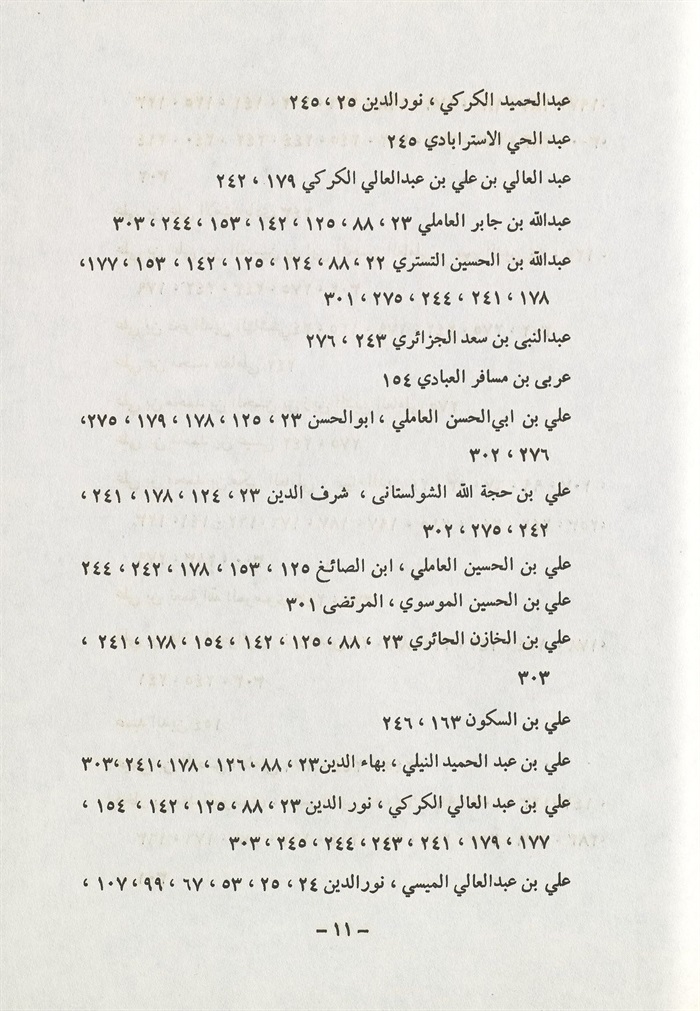 عبدالحميد الكركي ، نورالدين ٢٥ ، ٢٤٥
عبد الحي الاسترابادي ٢٤٥
عبد العالي بن علي بن عبدالعالي الكركي ١٧٩ ، ٢٤٢
عبدالله بن جابر العاملي ٢٣ ، ٨٨ ، ١٢٥ ، ١٤٢ ، ١٥٣ ، ٢٤٤ ، ٣٠٣
عبدالله بن الحسين التستري ٢٢ ، ٨٨ ، ١٢٤ ، ١٢٥ ، ١٤٢ ، ١٥٣ ، ١٧٧،
١٧٨ ، ٢٤١ ، ٢٤٤ ، ٢٧٥ ، ٣٠١
عبدالنبى بن سعد الجزائري ٢٤٣ ، ٢٧٦
عربى بن مسافر العبادي ١٥٤
علي بن ابي‌الحسن العاملي ، ابوالحسن ٢٣ ، ١٢٥ ، ١٧٨ ، ١٧٩ ، ٢٧٥،
٢٧٦ ، ٣٠٢
علي بن حجة الله الشولستانى ، شرف الدين ٢٣ ، ١٢٤ ، ١٧٨ ، ٢٤١ ،
٢٤٢ ، ٢٧٥ ، ٣٠٢
علي بن الحسين العاملي ، ابن الصائغ ١٢٥ ، ١٥٣ ، ١٧٨ ، ٢٤٢ ، ٢٤٤
علي بن الحسين الموسوي ، المرتضى ٣٠١
علي بن الخازن الحائري ٢٣ ، ٨٨ ، ١٢٥ ، ١٤٢ ، ١٥٤ ، ١٧٨ ، ٢٤١ ،
٣٠٣
علي بن السكون ١٦٣ ، ٢٤٦
علي بن عبد الحميد النيلي ، بهاء الدين٢٣ ، ٨٨ ، ١٢٦ ، ١٧٨ ، ٢٤١ ، ٣٠٣
علي بن عبد العالي الكركي ، نور الدين ٢٣ ، ٨٨ ، ١٢٥ ، ١٤٢ ، ١٥٤ ،
١٧٧ ، ١٧٩ ، ٢٤١ ، ٢٤٣ ، ٢٤٤ ، ٢٤٥ ، ٣٠٣
علي بن عبدالعالي الميسي ، نورالدين ٢٤ ، ٢٥ ، ٥٣ ، ٦٧ ، ٩٩ ، ١٠٧ ،
– ١١ –